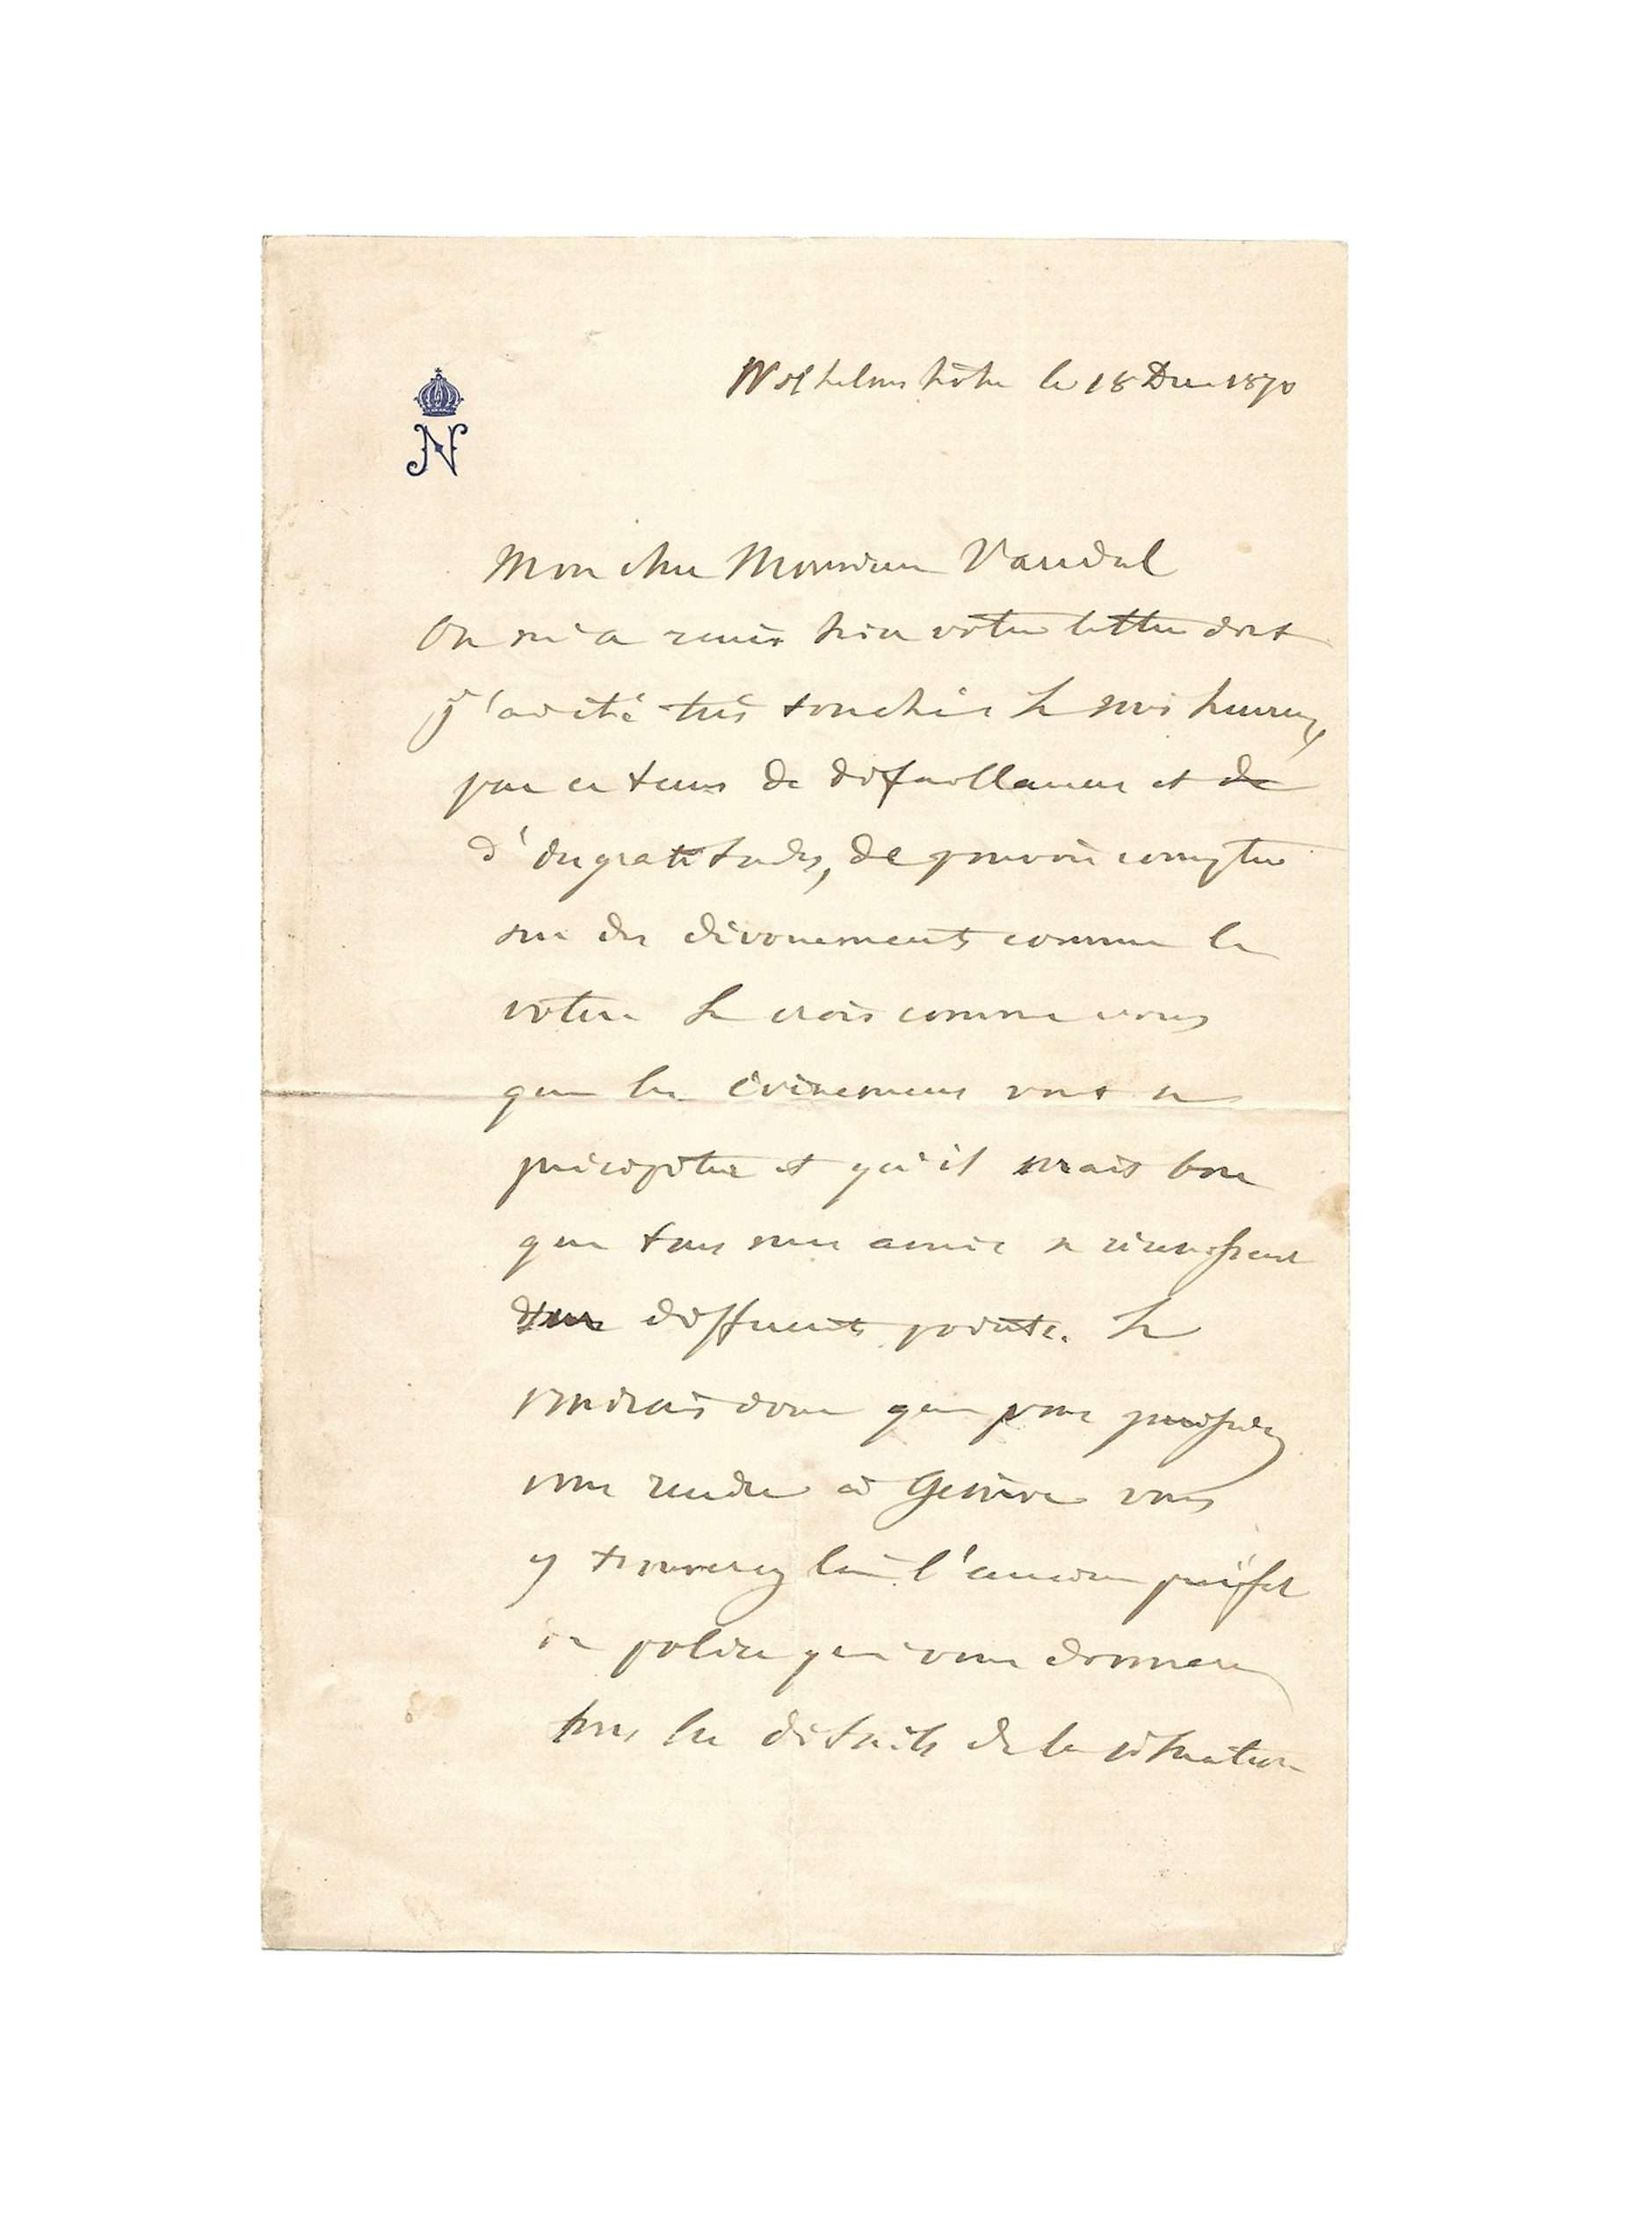 N
Wilhelmshöhe le 18 Dec 1870
Mon cher Monsieur Vandal
On m'a remis hier votre lettre dont
j'ai été très touché. Je suis heureux,
par ce tems de défaillances et de
d'ingratitudes, de pouvoir compter
sur des dévouements comme le
votre. Je crois comme vous
que les évènemens vont se
précipiter et qu'il serait bon
que tous mes amis se réunissent
sur différents points. Je
voudrais donc que vous puissiez
vous rendre à Genève vous
y trouverez là l'ancien préfet
de police qui vous donnera
tous les détails de la situation